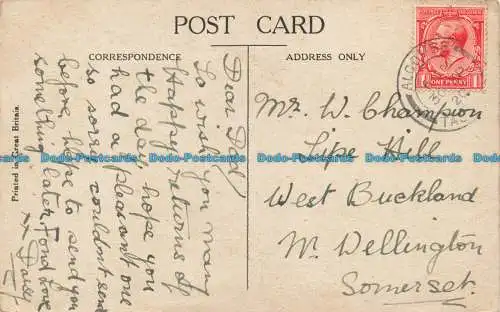 POST CARD
CORRESPONDENCE
ADDRESS ONLY
Dear Dad
To wish you many
Happy returns of
the day, hope you
had a pleasant one
so sorry couldn't send
before, hope to send you
something later, Fond Love
Mr. W. Champion
Sipe Hill
West Buckland
Nr. Wellington
Somerset.
Printed in Great Britain.
ONE PENNY
Bado Postcards
Bado Postcards
Bado Postcards
Bado Postcards